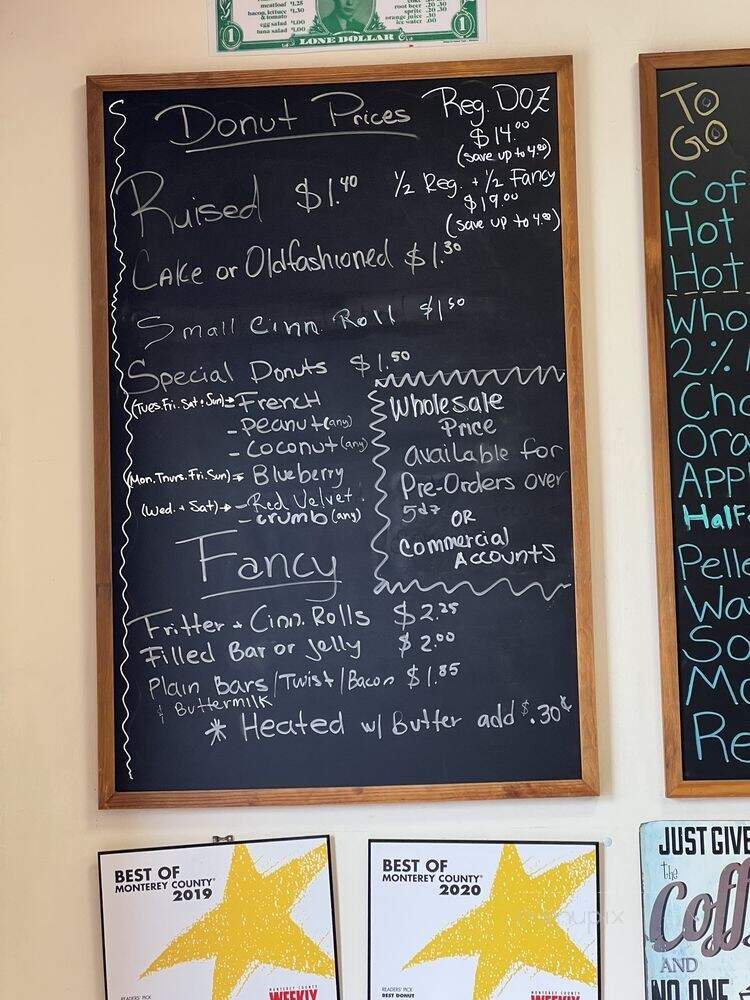 meatloaf $1.25
bacon, lettuce $1.30
& tomato
egg salad $1.00
tuna salad $1.00
root beer .20 .30
sprite .20 .30
orange juice .30
ice water .00
1 LONE DOLLAR 1
Donut Prices
Reg. DOZ
$14.00
(save up to 4.80)
1/2 Reg. + 1/2 Fancy
$19.00
(save up to 4.80)
Ruised $1.40
Cake or Oldfashioned $1.30
Small Cinn. Roll $1.50
Special Donuts $1.50
(Tues. Fri. Sat + Sun) → - French
- Peanut (any)
- Coconut (any)
(Mon. Thurs. Fri. Sun) → - Blueberry
(Wed. + Sat) → - Red Velvet.
- crumb (any)
Wholesale
Price
available for
Pre-Orders over
5dz
OR
Commercial
Accounts
Fancy
Fritter + Cinn. Rolls $2.25
Filled Bar or Jelly $2.00
Plain Bars/Twist/Bacon $1.85
& Buttermilk
* Heated w/ Butter add $.30¢
TO
GO
Cof
Hot
Hot
Who
2%
Cho
Ora
APP
Half
Pelle
Wa
So
Mo
Re
BEST OF
MONTEREY COUNTY®
2019
READERS' PICK
MONTEREY COUNTY
WEEKLY
BEST OF
MONTEREY COUNTY®
2020
READERS' PICK
BEST DONUT
MONTEREY COUNTY
WEEKLY
JUST GIVE
the
Coff
AND
NO ONE
menupix